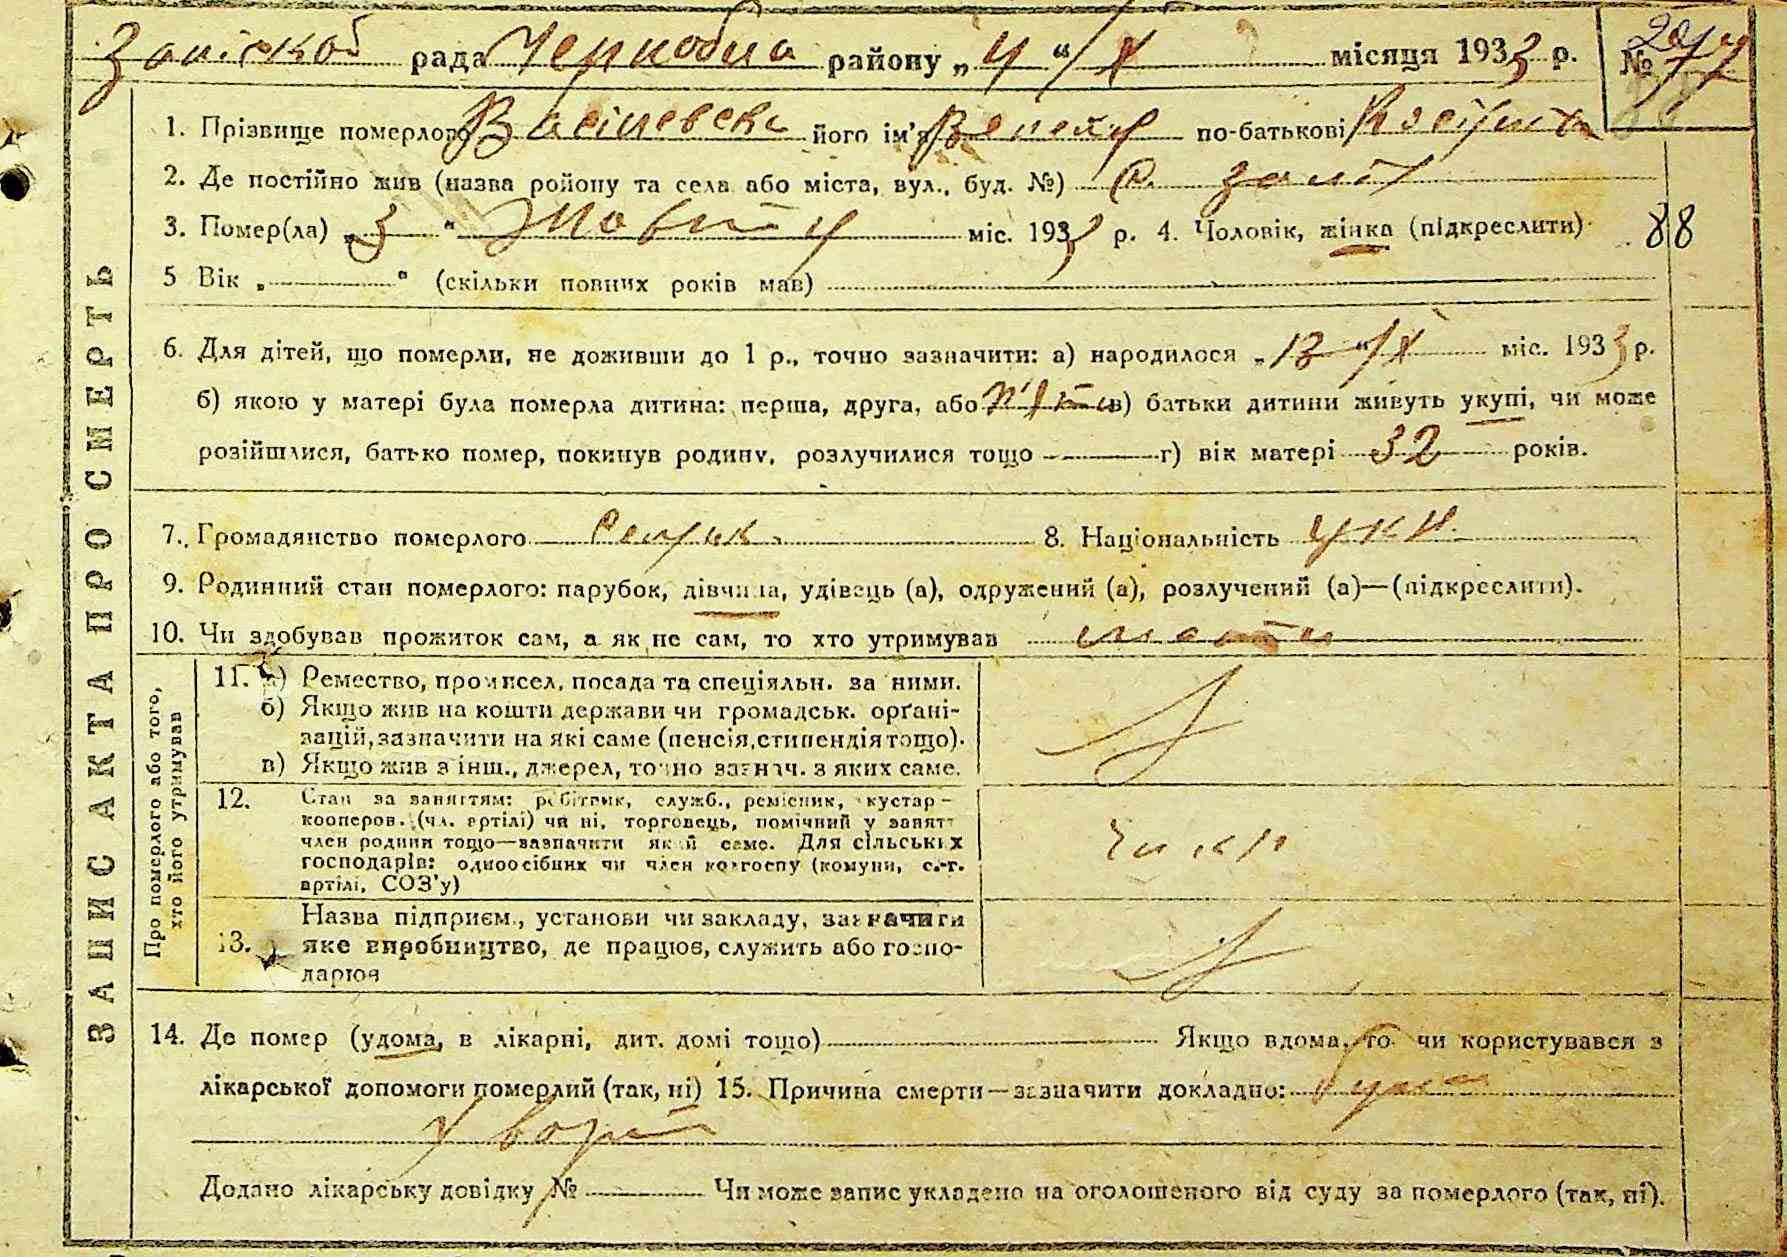 рада Чернобиль району „4“ ІХ місяця 1933 р. №
1. Прізвище померлого його ім'я по-батькові
2. Де постійно жив (назва району та села або міста, вул., буд. №) с.
3. Помер(ла) „3“ міс. 1933 р. 4. Чоловік, жінка (підкреслити) 88
5 Вік „ “ (скільки повних років мав)
6. Для дітей, що померли, не доживши до 1 р., точно зазначити: а) народилося „13“ ІХ міс. 1933 р.
б) якою у матері була померла дитина: перша, друга, або п'ята в) батьки дитини живуть укупі, чи може
розійшлися, батько помер, покинув родину, розлучилися тощо г) вік матері 32 років.
7. Громадянство померлого 8. Національність укр.
9. Родинний стан померлого: парубок, дівчина, удівець (а), одружений (а), розлучений (а)—(підкреслити).
10. Чи здобував прожиток сам, а як не сам, то хто утримував мати
ЗАПИС АКТА ПРО СМЕРТЬ
Про померлого або того,
хто його утримував
11. а) Ремество, промисел, посада та спеціяльн. за ними.
б) Якщо жив на кошти держави чи громадськ. орґані-
зацій, зазначити на які саме (пенсія, стипендія тощо).
в) Якщо жив з інш., джерел, точно зазнач. з яких саме.
12. Стан за заняттям: робітник, служб., ремісник, кустар-
кооперов. (чл. артілі) чи ні, торговець, помічний у занятт
член родини тощо—зазначити який саме. Для сільських
господарів: одноосібник чи член колгоспу (комуни, с.-г.
артілі, СОЗ'у)
13. Назва підприєм., установи чи закладу, зазначити
яке виробництво, де працює, служить або госпо-
дарює
14. Де помер (удома, в лікарні, дит. домі тощо) Якщо вдома, то чи користувався з
лікарської допомоги померлий (так, ні) 15. Причина смерти—зазначити докладно:
Додано лікарську довідку № Чи може запис укладено на оголошеного від суду за померлого (так, ні).